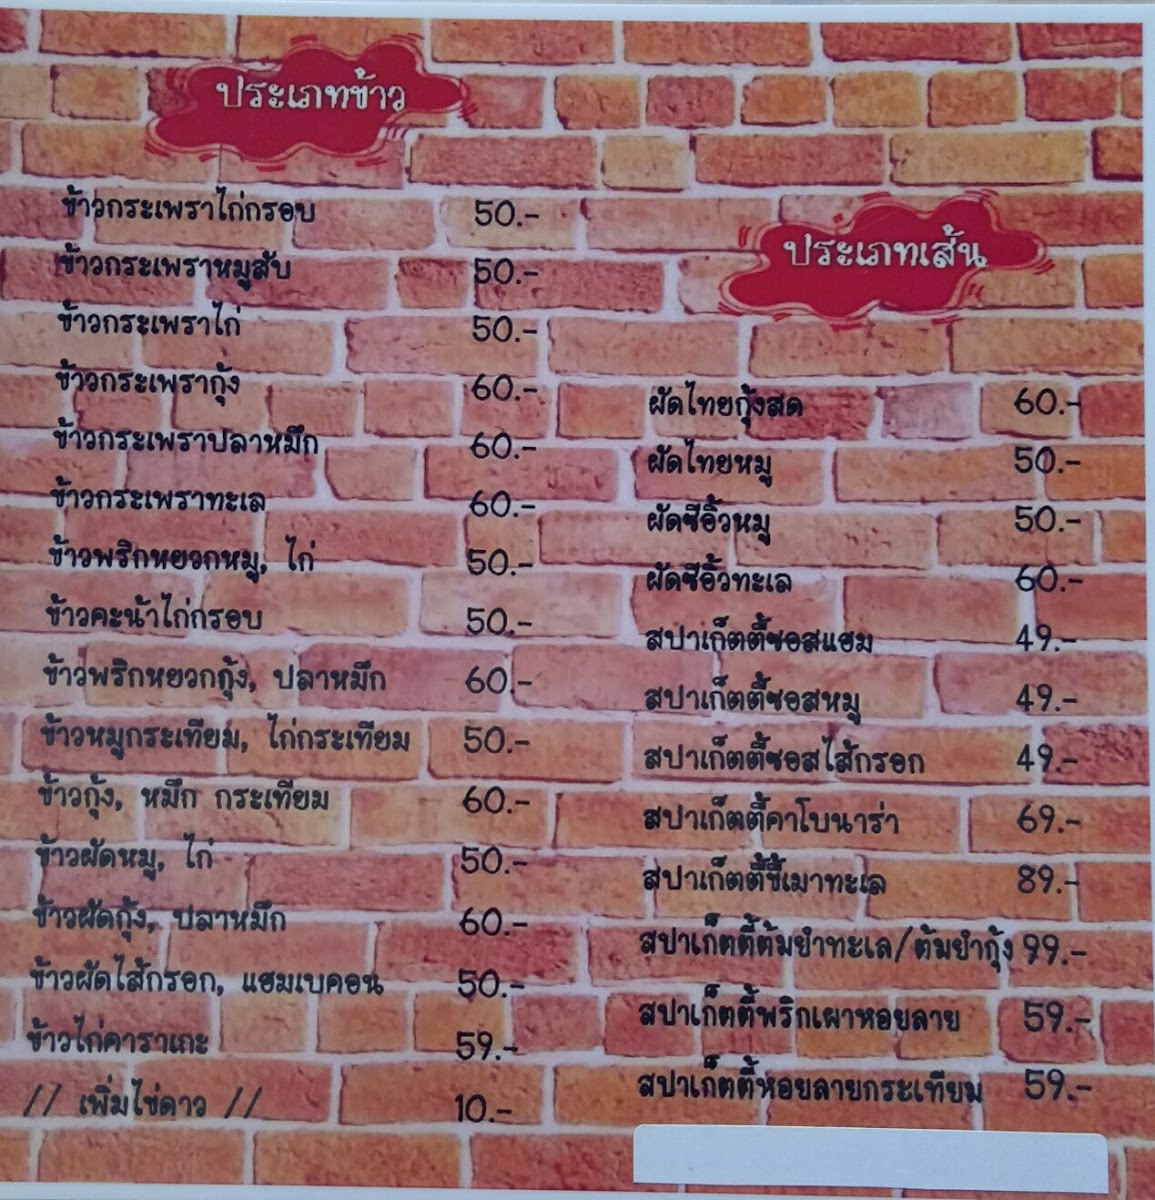 ประเภทข้าว
ข้าวกระเพราไก่กรอบ 50.-
ข้าวกระเพราหมูสับ 50.-
ข้าวกระเพราไก่ 50.-
ข้าวกระเพรากุ้ง 60.-
ข้าวกระเพราปลาหมึก 60.-
ข้าวกระเพราทะเล 60.-
ข้าวพริกหยวกหมู, ไก่ 50.-
ข้าวคะน้าไก่กรอบ 50.-
ข้าวพริกหยวกกุ้ง, ปลาหมึก 60.-
ข้าวหมูกระเทียม, ไก่กระเทียม 50.-
ข้าวกุ้ง, หมึก กระเทียม 60.-
ข้าวผัดหมู, ไก่ 50.-
ข้าวผัดกุ้ง, ปลาหมึก 60.-
ข้าวผัดไส้กรอก, แฮมเบคอน 50.-
ข้าวไก่คาราเกะ 59.-
// เพิ่มไข่ดาว // 10.-
ประเภทเส้น
ผัดไทยกุ้งสด 60.-
ผัดไทยหมู 50.-
ผัดซีอิ้วหมู 50.-
ผัดซีอิ้วทะเล 60.-
สปาเก็ตตี้ซอสแฮม 49.-
สปาเก็ตตี้ซอสหมู 49.-
สปาเก็ตตี้ซอสไส้กรอก 49.-
สปาเก็ตตี้คาโบนาร่า 69.-
สปาเก็ตตี้ขี้เมาทะเล 89.-
สปาเก็ตตี้ต้มยำทะเล/ต้มยำกุ้ง 99.-
สปาเก็ตตี้พริกเผาหอยลาย 59.-
สปาเก็ตตี้หอยลายกระเทียม 59.-